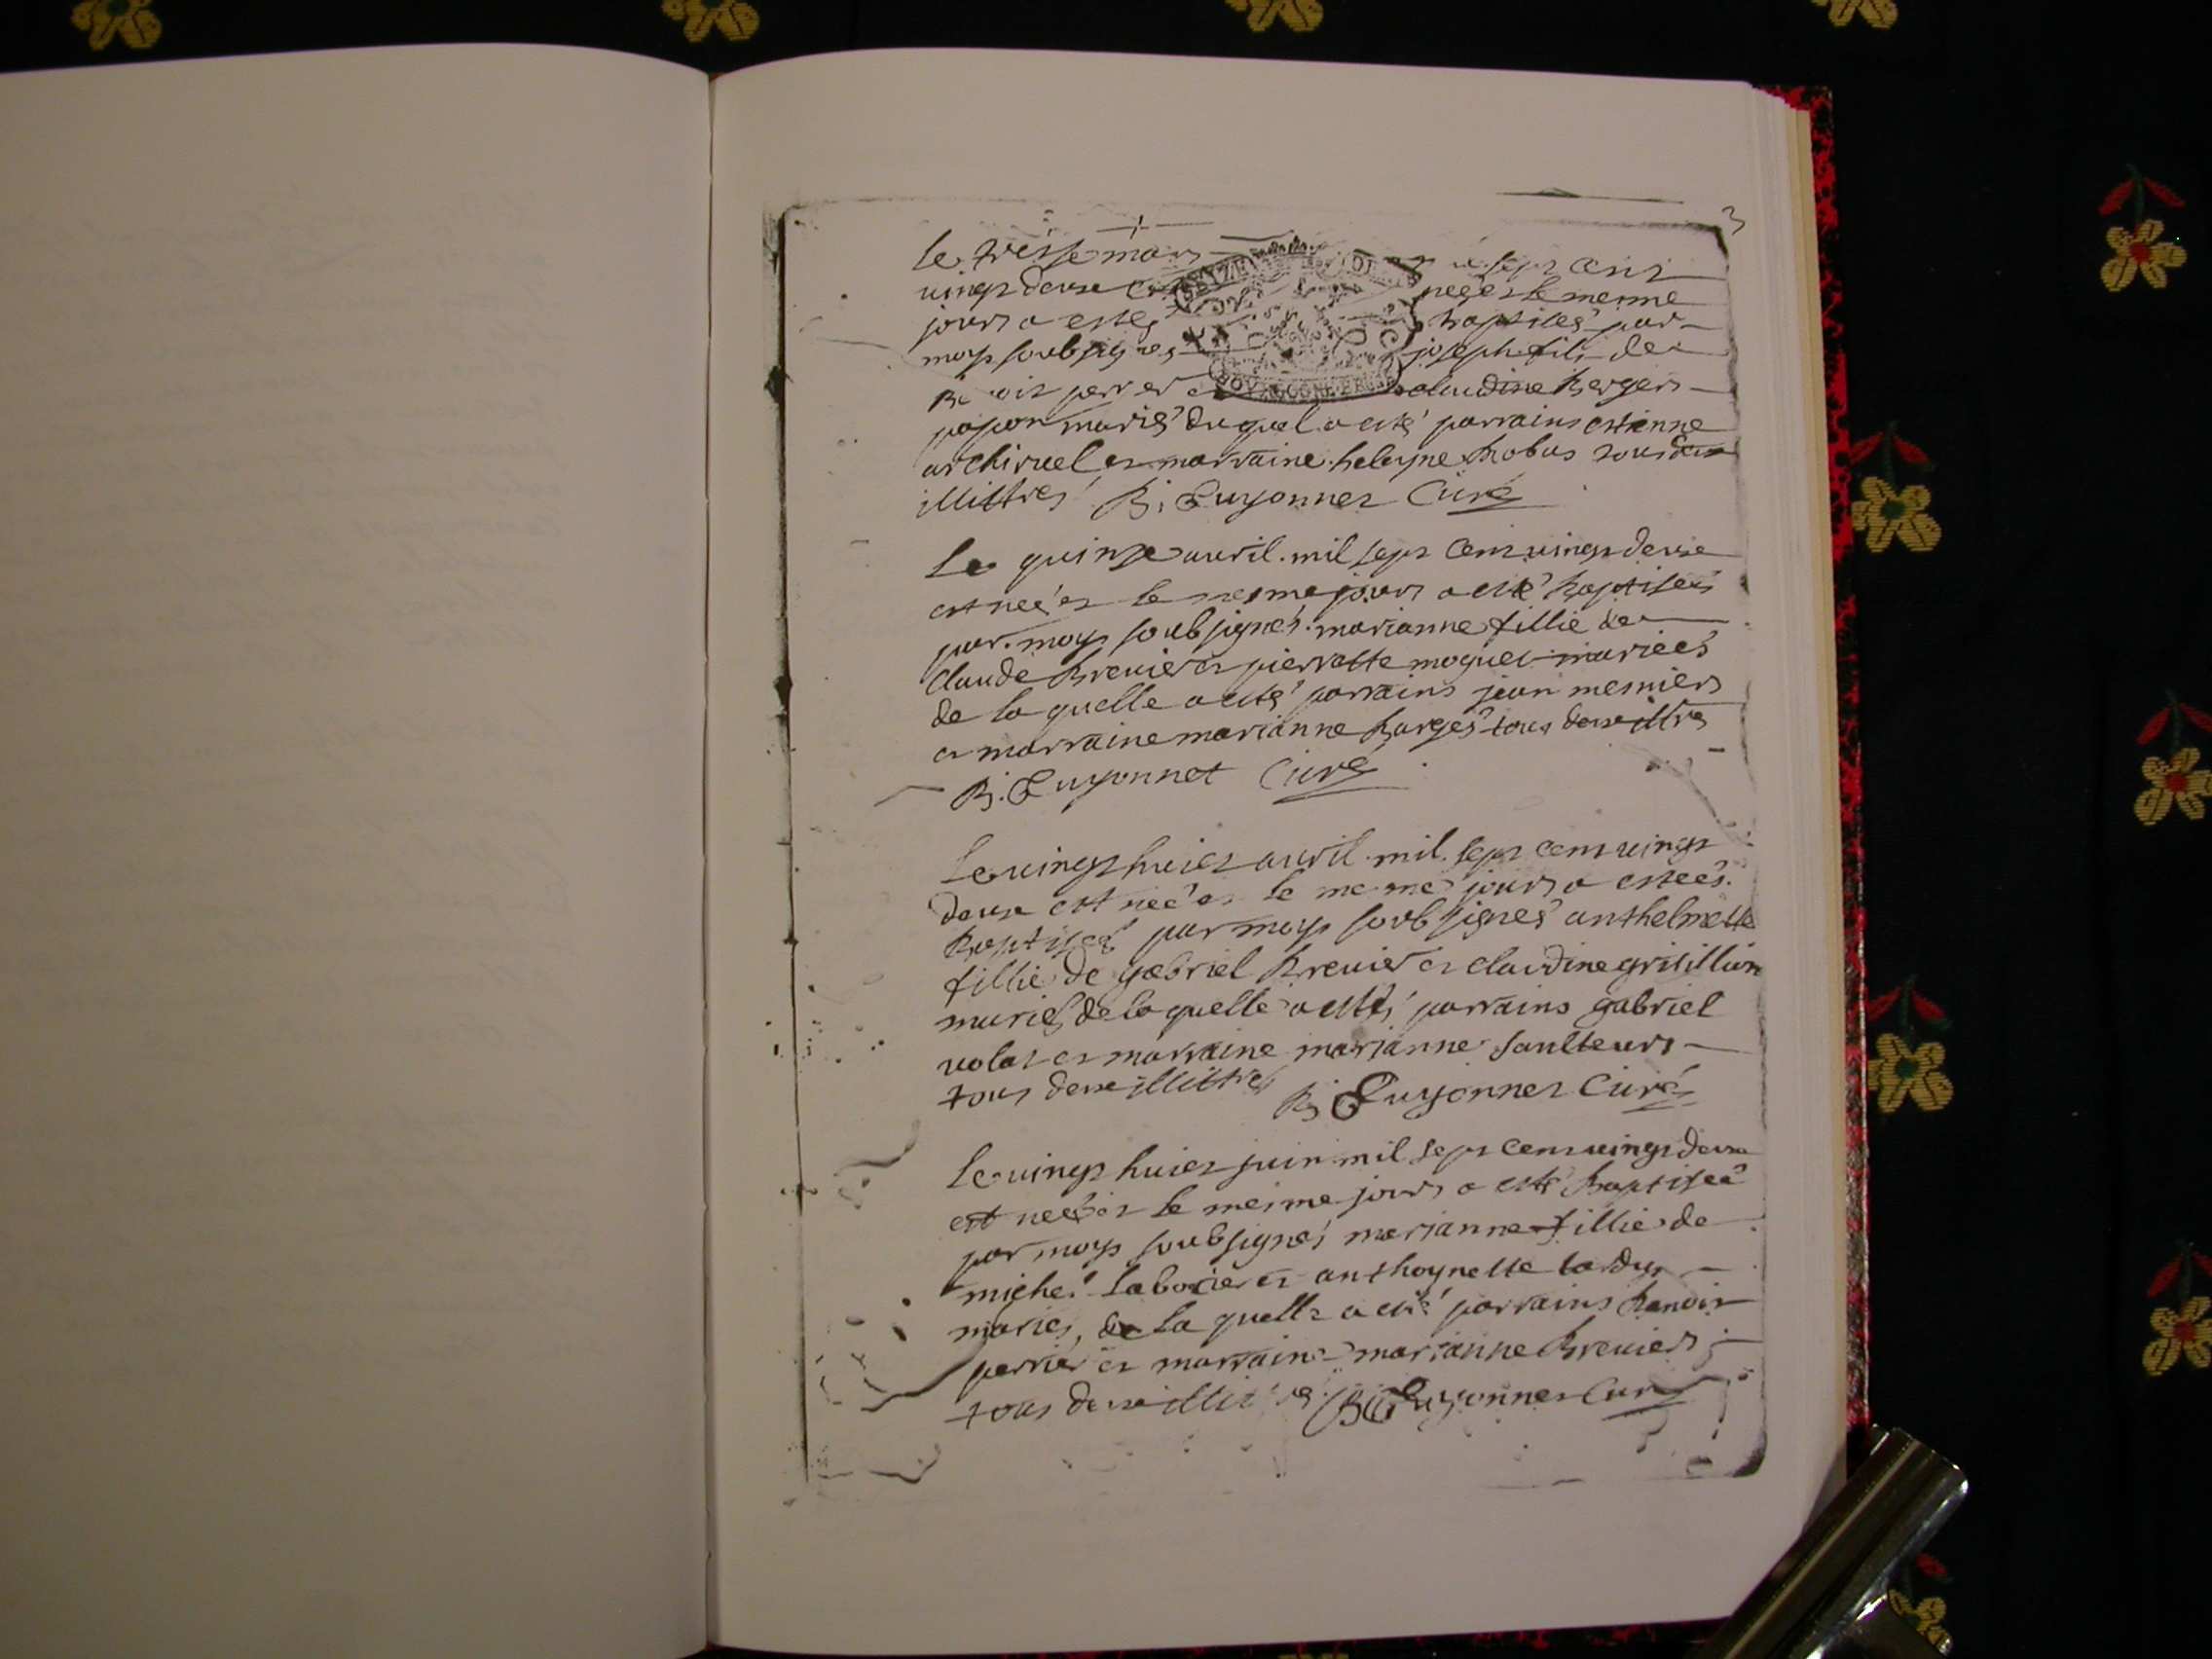 3
le treisse mars sept cent
vingt deux et neé et le mesme
jours a esté baptisés par
moy soubsignes joseph fils de
perrier claudine berger
papon mariés duquel a esté parrains estienne
archiruel et marraine heleyne tous deux
illittres B. Guyonnet Curé
Le quinze auril mil sept cent vingt deuxe
est neé et le mesme jours a esté baptiseés
par moy soubsignés marianne fillie de
claude breuier et pierrette moguet marieés
de la quelle a esté parrains jean mesniers
et marraine marianne barges tous deux illtres
B. Guyonnet Curé
Le vingt huict auril mil sept cent vingt
deux est neé et le meme jours a esteés
Baptiseé par moy soubsignés anthelmette
fillie de gabriel breuier et claudine grisillion
mariés de la quelle a esté parrains gabriel
volat et marraine marianne saulteurs
tous deux illittres B. Guyonnet Curé
Le vingt huict juin mil sept cent vingt deux
est neé et le mesme jours a esté baptiseé
par moy soubsignés marianne fillie de
michel laborier et anthoynette tardy
mariés, de la quelle a esté parrains benoit
perrier et marraine marianne breuiers
tous deux illittres B. Guyonnet Curé